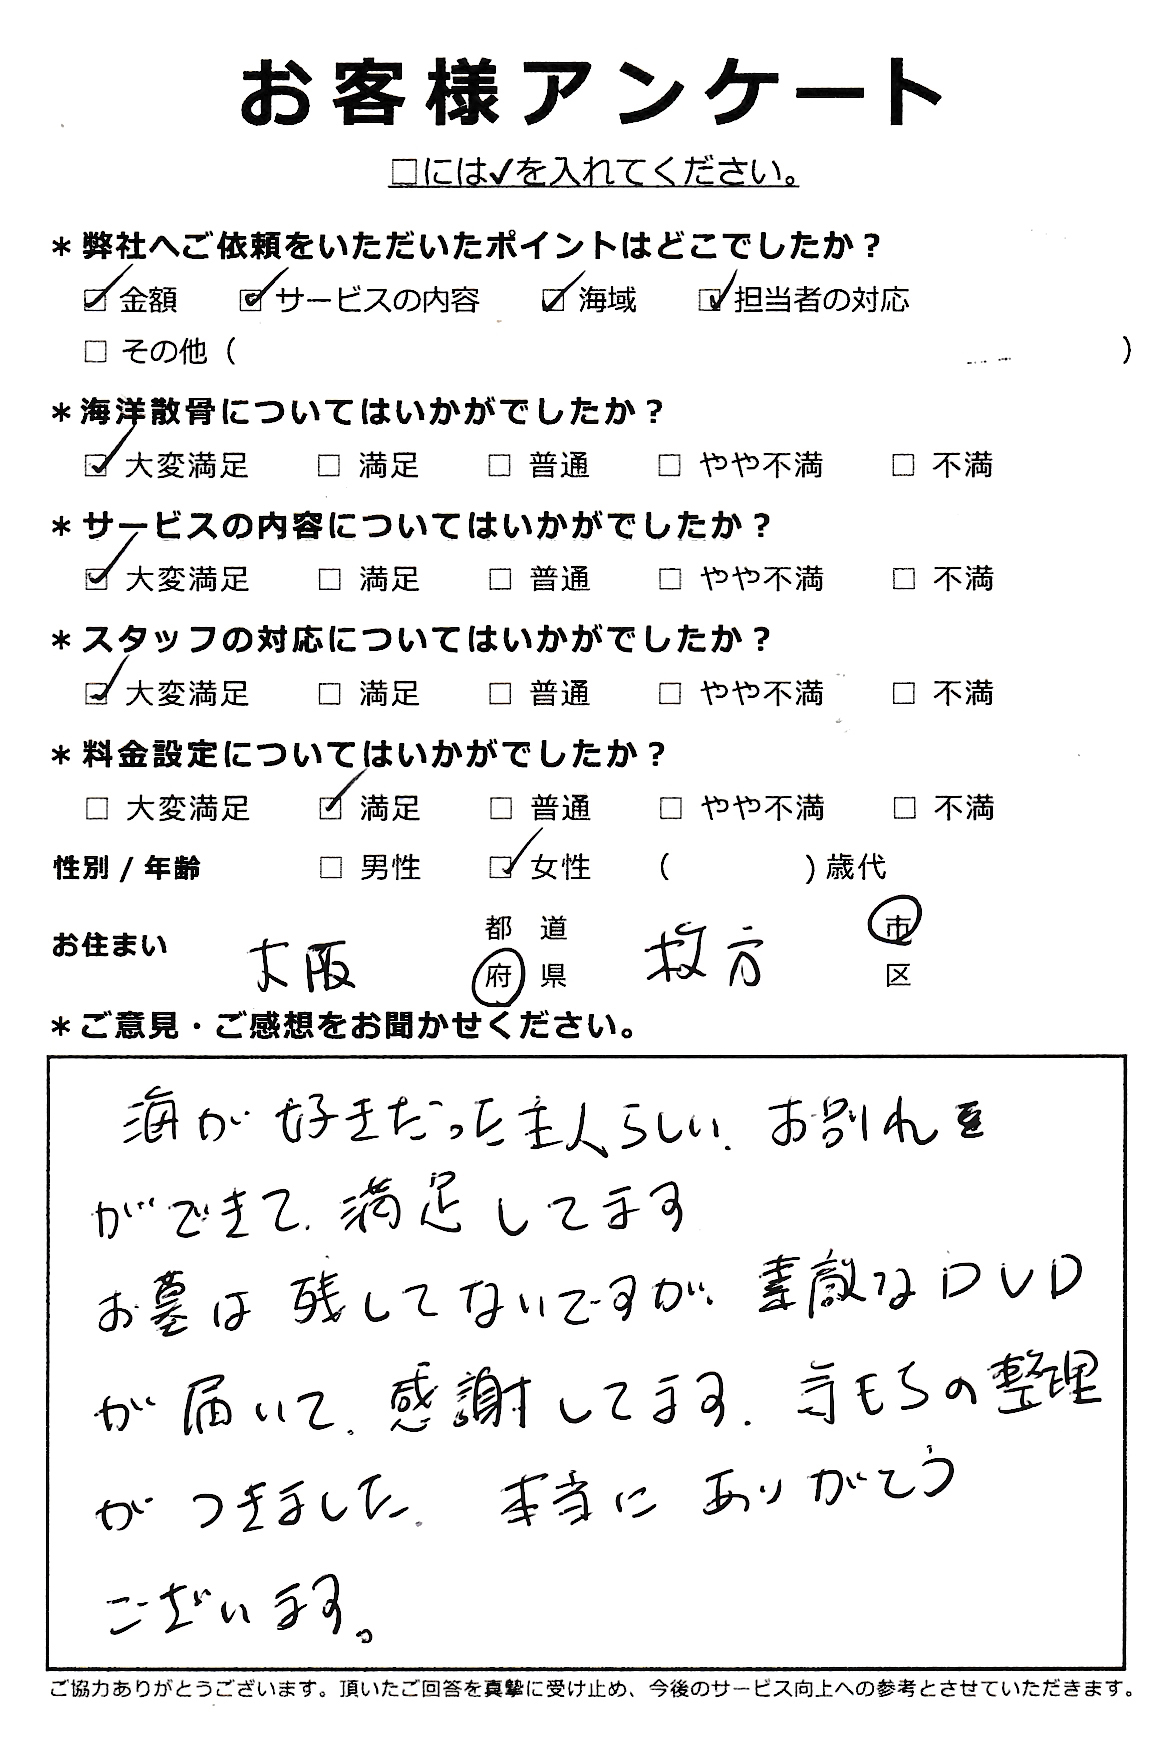 お客様アンケート
□には✓を入れてください。
＊弊社へご依頼をいただいたポイントはどこでしたか？
☑ 金額 ☑ サービスの内容 ☑ 海域 ☑ 担当者の対応
□ その他（ ）
＊海洋散骨についてはいかがでしたか？
☑ 大変満足 □ 満足 □ 普通 □ やや不満 □ 不満
＊サービスの内容についてはいかがでしたか？
☑ 大変満足 □ 満足 □ 普通 □ やや不満 □ 不満
＊スタッフの対応についてはいかがでしたか？
☑ 大変満足 □ 満足 □ 普通 □ やや不満 □ 不満
＊料金設定についてはいかがでしたか？
□ 大変満足 ☑ 満足 □ 普通 □ やや不満 □ 不満
性別 / 年齢 □ 男性 ☑ 女性 （ ）歳代
お住まい 大阪 都 道 府 県 枚方 市 区
＊ご意見・ご感想をお聞かせください。
海が好きだった主人らしい、お別れ
ができて、満足してます
お墓は残してないですが、素敵なDVD
が届いて、感謝してます。気もちの整理
がつきました。本当にありがとう
ございます。
ご協力ありがとうございます。頂いたご回答を真摯に受け止め、今後のサービス向上への参考とさせていただきます。